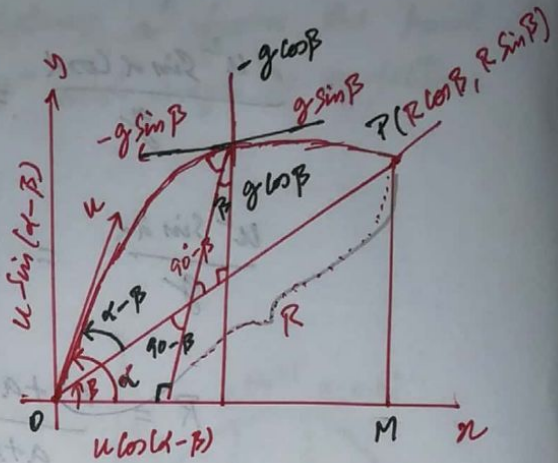 y
-g cosβ
-g sinβ
g sinβ
P(R cosβ, R sinβ)
β
g cosβ
u
u sin(α-β)
90-β
α-β
90-β
R
β
α
O
u cos(α-β)
M
x